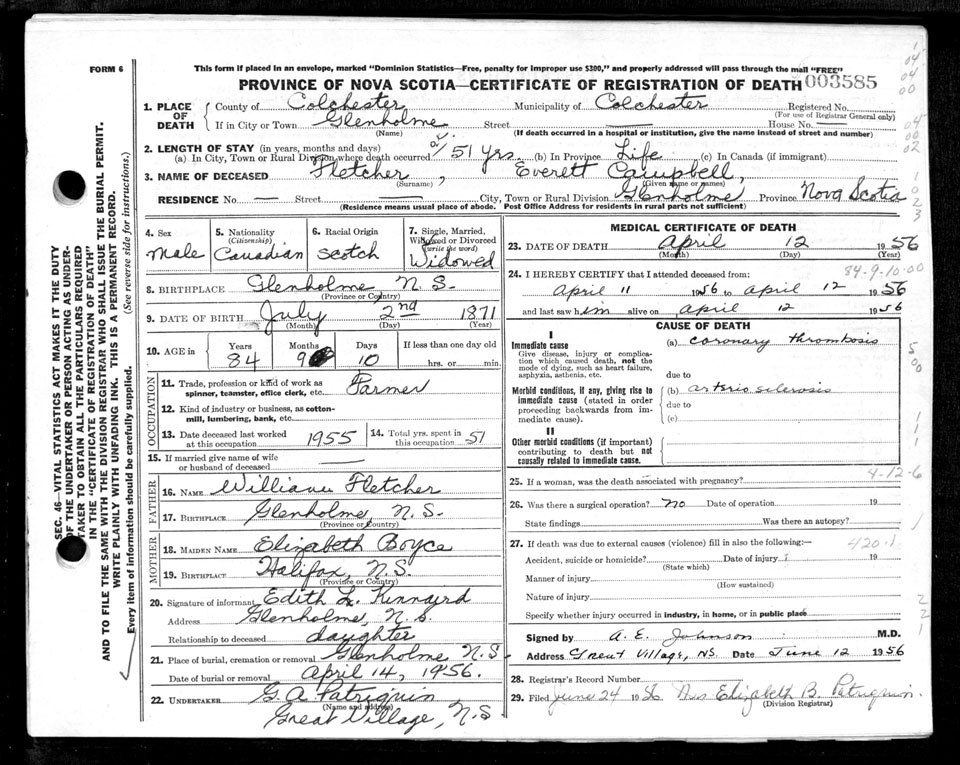 FORM 6
This form if placed in an envelope, marked "Dominion Statistics—Free, penalty for improper use $300," and properly addressed will pass through the mail "FREE"
PROVINCE OF NOVA SCOTIA—CERTIFICATE OF REGISTRATION OF DEATH 003585
1. PLACE OF DEATH County of Colchester Municipality of Colchester Registered No.
(For use of Registrar General only)
If in City or Town Glenholme Street — House No. —
(Name) (If death occurred in a hospital or institution, give the name instead of street and number)
2. LENGTH OF STAY (in years, months and days)
(a) In City, Town or Rural Division where death occurred 51 yrs (b) In Province Life (c) In Canada (if immigrant)
3. NAME OF DECEASED Fletcher, Everett Campbell,
(Surname) (Given name or names)
RESIDENCE No — Street — City, Town or Rural Division Glenholme Province Nova Scotia
(Residence means usual place of abode. Post Office Address for residents in rural parts not sufficient)
4. Sex Male
5. Nationality (Citizenship) Canadian
6. Racial Origin Scotch
7. Single, Married, Widowed or Divorced (write the word) Widowed
8. BIRTHPLACE Glenholme, N.S.
(Province or Country)
9. DATE OF BIRTH July 2nd 1871
(Month) (Day) (Year)
10. AGE in Years 84 Months 9 Days 10 If less than one day old hrs. or min.
OCCUPATION
11. Trade, profession or kind of work as spinner, teamster, office clerk, etc. Farmer
12. Kind of industry or business, as cotton-mill, lumbering, bank, etc.
13. Date deceased last worked at this occupation 1955
14. Total yrs. spent in this occupation 51
15. If married give name of wife or husband of deceased —
FATHER
16. NAME William Fletcher
17. BIRTHPLACE Glenholme, N.S.
(Province or Country)
MOTHER
18. MAIDEN NAME Elizabeth Boyce
19. BIRTHPLACE Halifax, N.S.
(Province or Country)
20. Signature of informant Edith L. Kinnayrd
Address Glenholme, N.S.
Relationship to deceased daughter
21. Place of burial, cremation or removal Glenholme N.S.
Date of burial or removal April 14, 1956.
22. UNDERTAKER G. A. Patriquin
(Name and address)
Great Village, N.S
MEDICAL CERTIFICATE OF DEATH
23. DATE OF DEATH April 12 1956
(Month) (Day)
84-9-10-00
24. I HEREBY CERTIFY that I attended deceased from:
April 11 1956 to April 12 1956
and last saw him alive on April 12 1956
CAUSE OF DEATH
I
Immediate cause (a) coronary thrombosis
Give disease, injury or complication which caused death, not the mode of dying, such as heart failure, asphyxia, asthenia, etc.
due to
Morbid conditions, if any, giving rise to immediate cause (stated in order proceeding backwards from immediate cause).
(b) arterio sclerosis
due to
(c)
II
Other morbid conditions (if important) contributing to death but not causally related to immediate cause.
4-12-6
25. If a woman, was the death associated with pregnancy?
26. Was there a surgical operation? no Date of operation 19
State findings Was there an autopsy?
27. If death was due to external causes (violence) fill in also the following:— 420.1
Accident, suicide or homicide? Date of injury 19
(State which)
Manner of injury
(How sustained)
Nature of injury
Specify whether injury occurred in industry, in home, or in public place
Signed by A. E. Johnson M.D.
Address Great Village, NS. Date June 12 1956
28. Registrar's Record Number
29. Filed June 24 1956 Mrs Elizabeth B. Patriquin
(Division Registrar)
SEC. 46—VITAL STATISTICS ACT MAKES IT THE DUTY
OF THE UNDERTAKER OR PERSON ACTING AS UNDER-
TAKER TO OBTAIN ALL THE PARTICULARS REQUIRED
IN THE "CERTIFICATE OF REGISTRATION OF DEATH"
AND TO FILE THE SAME WITH THE DIVISION REGISTRAR WHO SHALL ISSUE THE BURIAL PERMIT.
WRITE PLAINLY WITH UNFADING INK. THIS IS A PERMANENT RECORD.
Every item of information should be carefully supplied. (See reverse side for instructions.)